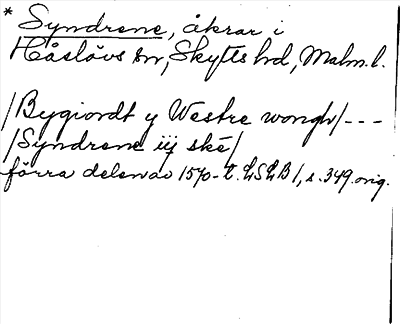 * Syndrene, åkrar i
Håslövs sn, Skytts hd, Malm. l.
/Bygiordt y Westre wongh/---
/Syndrene iij skē/
förra delen av 1570-t. LSLB 1, s. 349. orig.